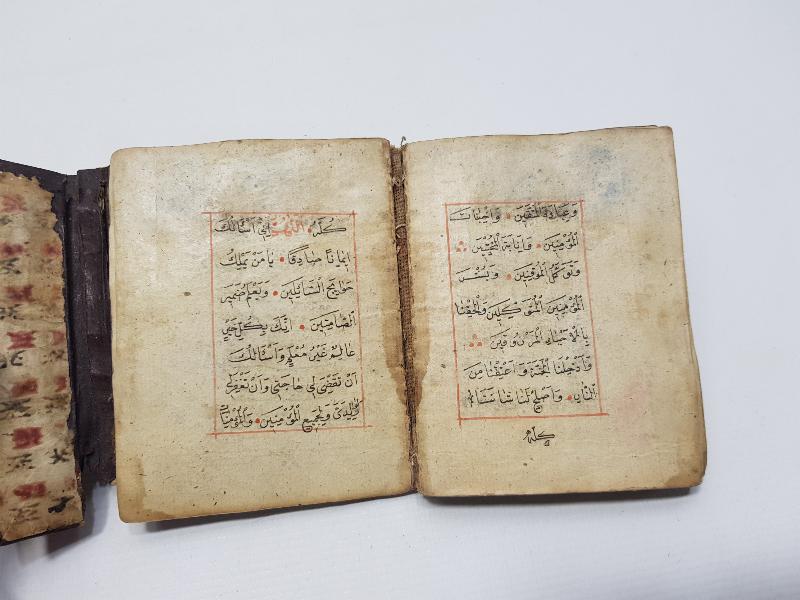 وعبادة المتقين واخبات
المؤمنين وانابة المخبتين
وتوكل الموقنين وبشر
المؤمنين المتوكلين والحقنا
بالاحياء المرزوقين
وادخلنا الجنة واعتقنا من
النار واصلح لنا شاننا
كله
كله اللهم اني اسئالك
ايمانا صادقا يا من يملك
حوايج السائلين ويعلم ضمير
الصامتين انك بكل خير
عالم غير معلم واسئالك
ان تقضي لي حاجتي وان تغفر لي
ولوالدي ولجميع المؤمنين والمؤمنات